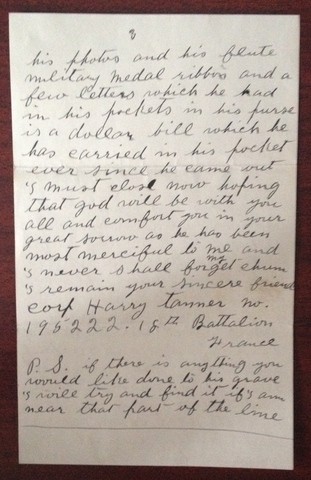 8
his photos and his flute
military medal ribbos and a
few letters which he had
in his pockets in his purse
is a dollar bill which he
has carried in his pocket
ever since he came out
's must close now hoping
that god will be with you
all and comfort you in your
great sorrow as he has been
most merciful to me and
's never shall forget my chum
's remain your sincere friend
corp Harry tanner no.
195222. 18th Battalion
France
P.S. if there is anything you
would like done to his grave
's will try and find it if 's am
near that part of the line